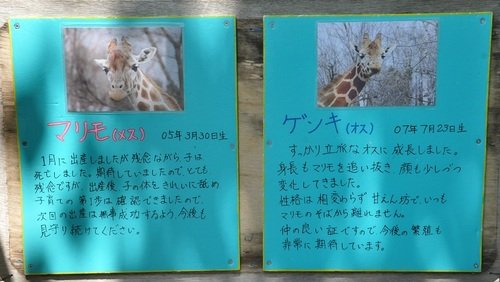 マリモ(メス) 05年3月30日生
1月に出産しましたが残念ながら、子は
死亡しました。期待していましたので、とても
残念ですが、出産後、子の体をきれいに舐め
子育ての第1歩は確認できましたので、
次回の出産は無事成功するよう、今後も
見守り続けてください。
ゲンキ(オス) 07年7月23日生
すっかり立派なオスに成長しました。
身長もマリモを追い抜き、顔も少しづつ
変化してきました。
性格は相変わらず甘えん坊で、いつも
マリモのそばから離れません。
仲の良い証ですので、今後の繁殖も
非常に期待しています。